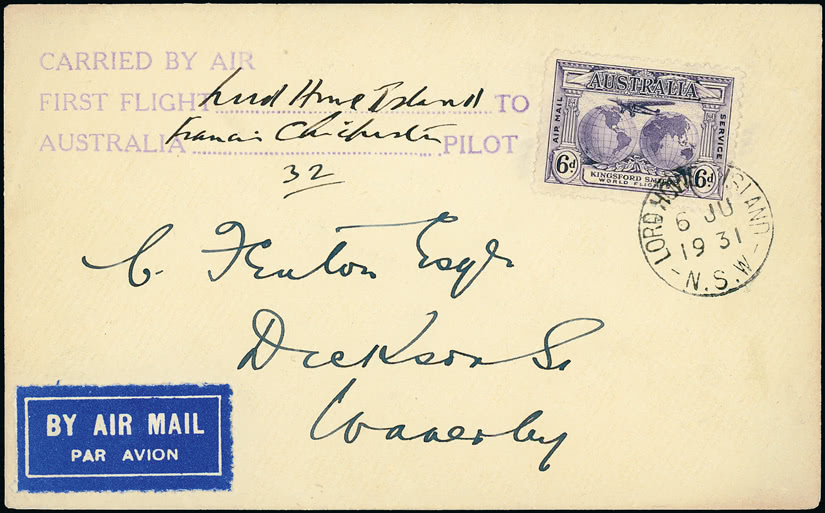 CARRIED BY AIR
FIRST FLIGHT Lord Howe Island TO
AUSTRALIA Francis Chichester PILOT
32
AUSTRALIA
AIR MAIL
SERVICE
6d
KINGSFORD SMITH
6d
WORLD FLIGHT
LORD HOWE ISLAND
6 JU
19 31
- N.S.W -
C. Fenton Esqr
Dickson St
Waverley
BY AIR MAIL
PAR AVION